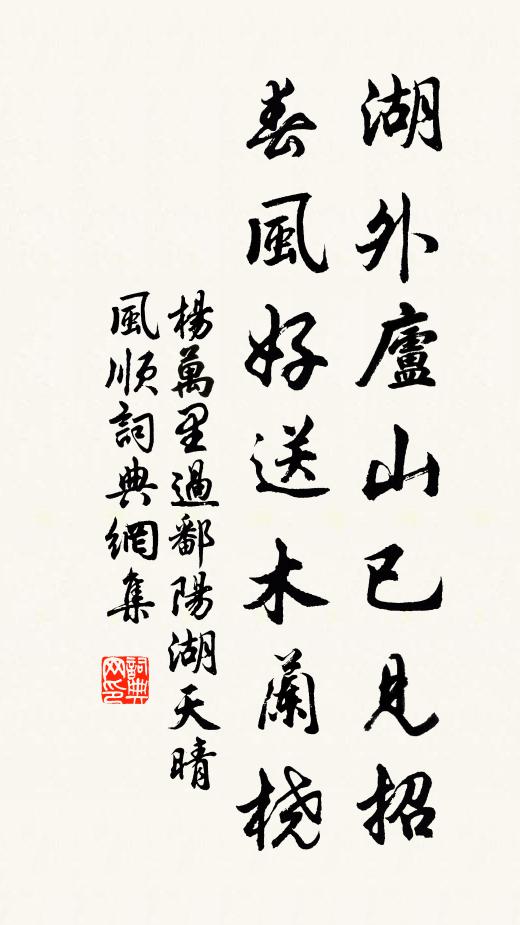 湖外廬山已見招
春風好送木蘭桡
楊萬里過鄱陽湖天晴
風順詞典網集
詞典网印